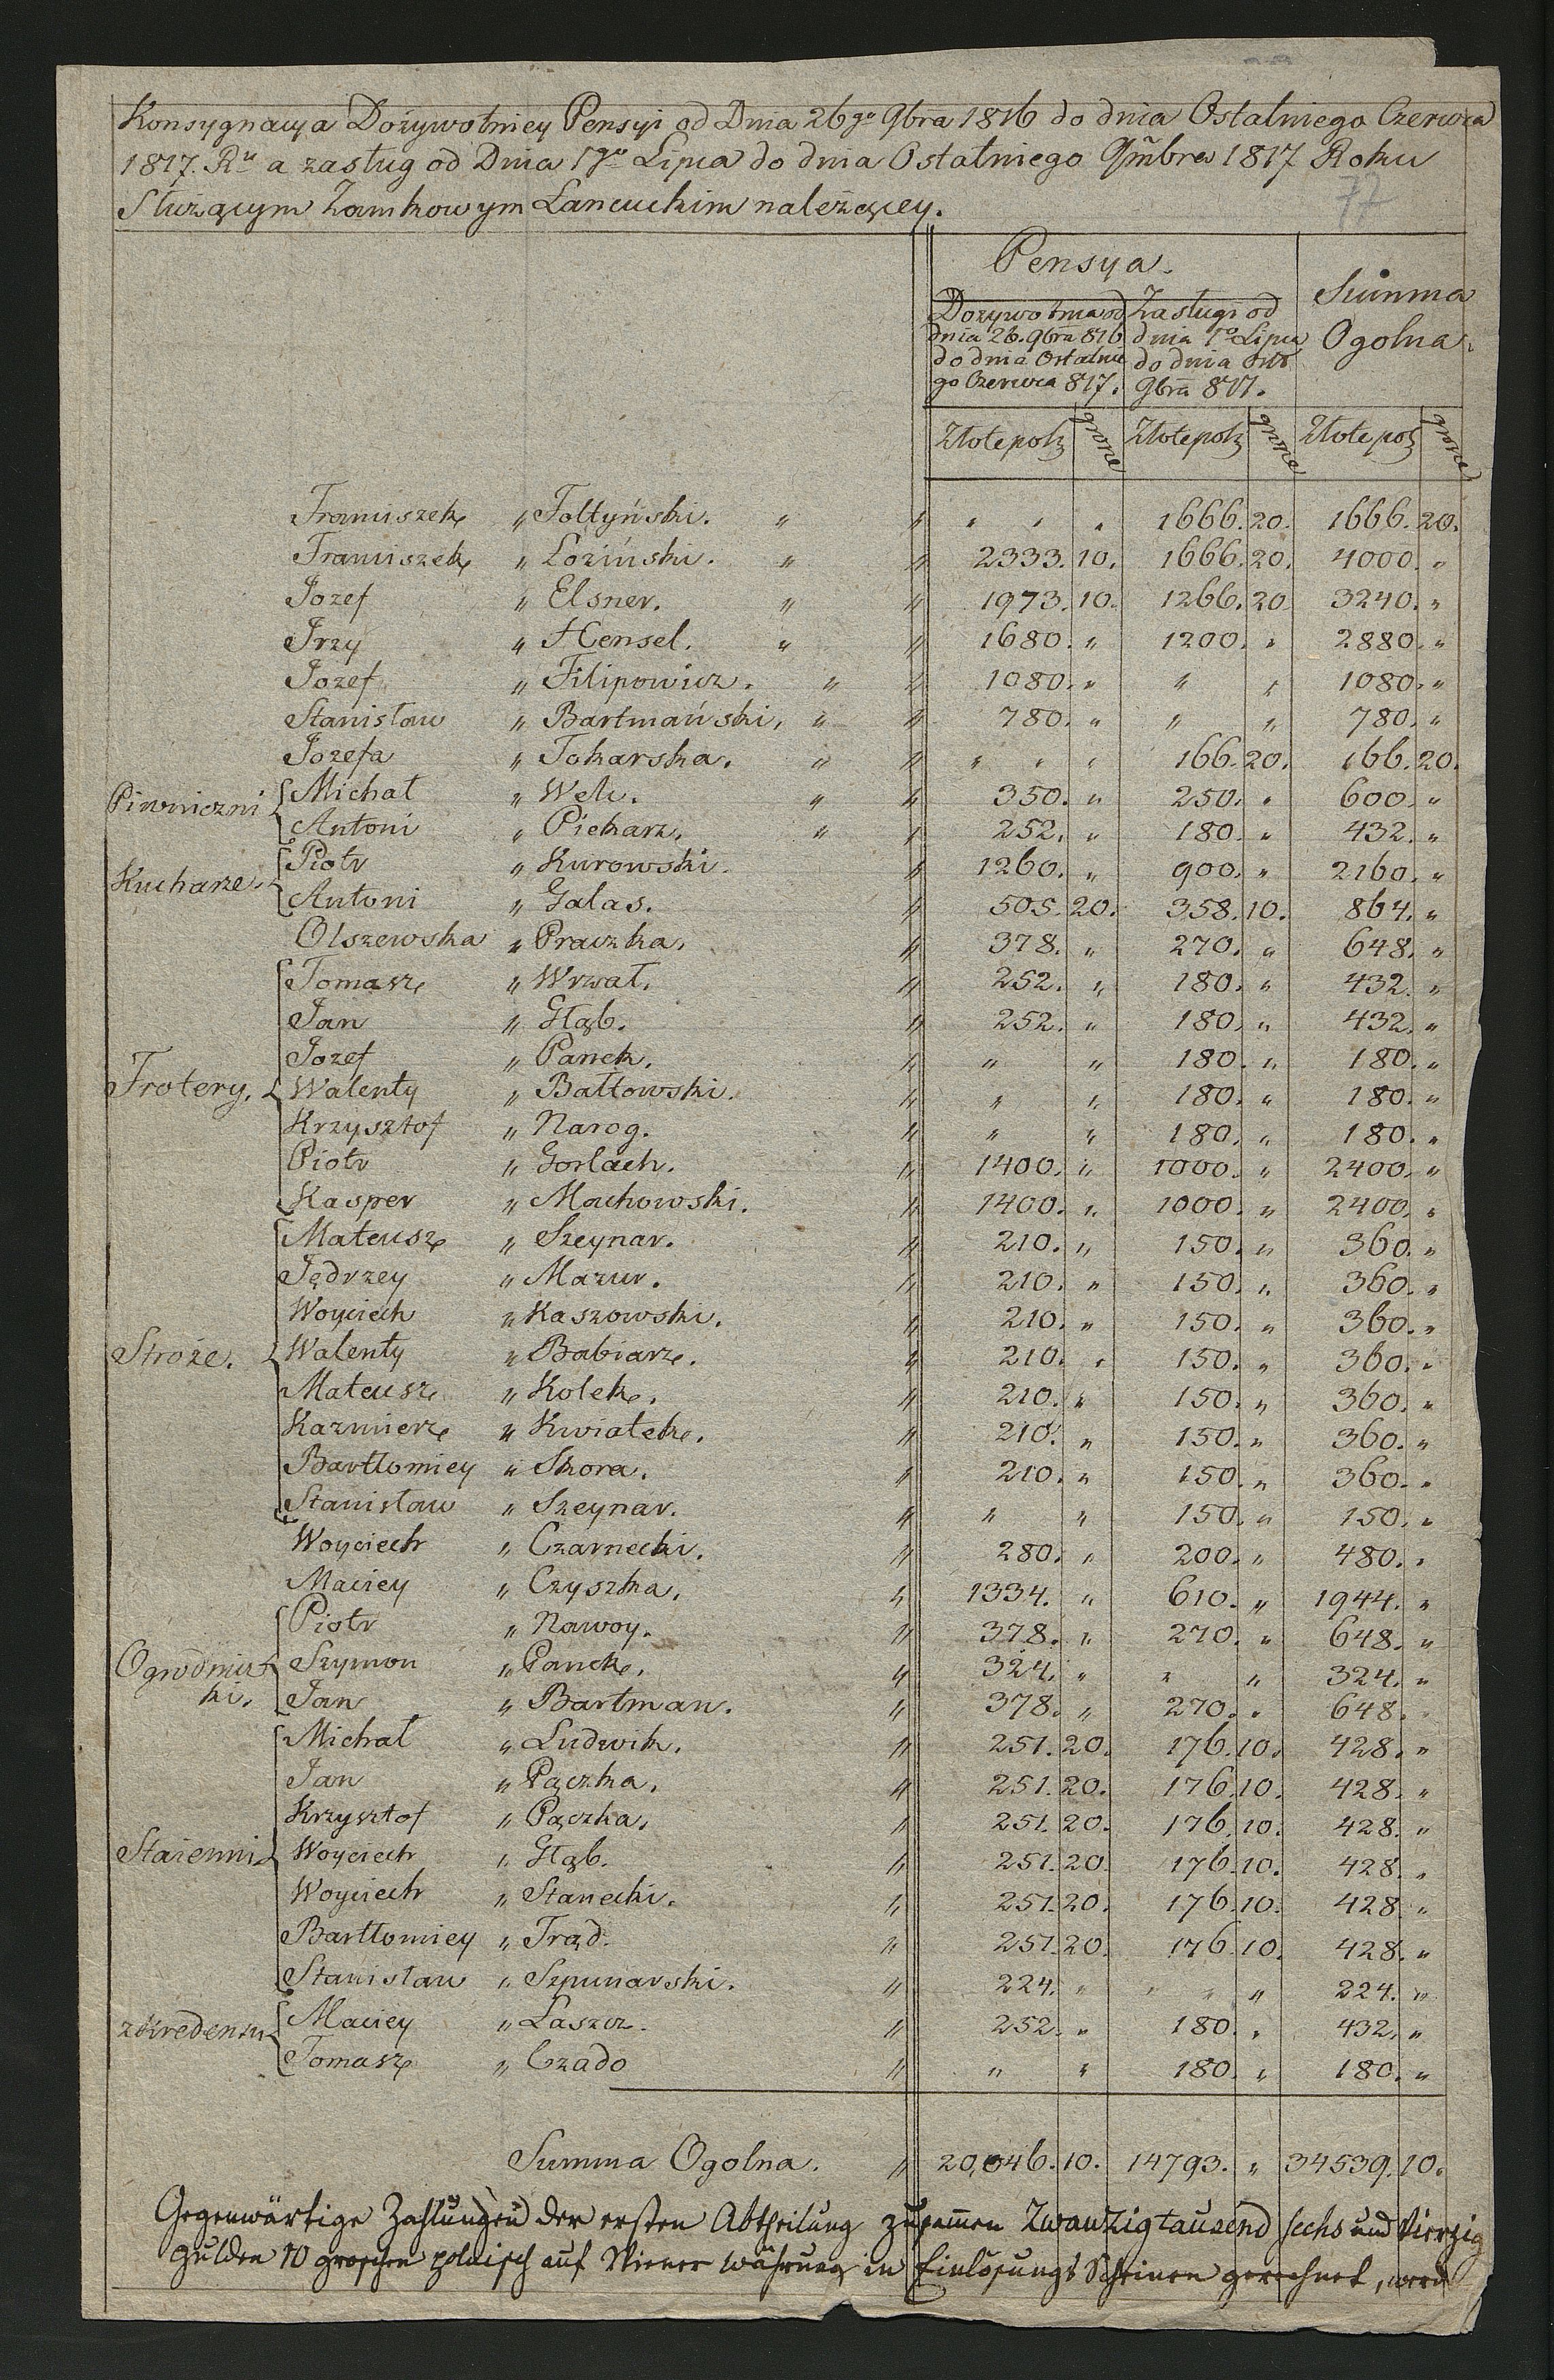 Konsygnacya Dożywotniey Pensyi od Dnia 26go 9bra 1816 do dnia Ostatniego Czerwca
1817. Ru a zasług od Dnia 1go Lipca do dnia Ostatniego 9mbra 1817 Roku
Służącym Zamkowym Łancuckim należącey.
77
Pensya.
Summa Ogolna.
Dozywotnia od dnia 26. 9bra 816 do dnia Ostatniego Czerwca 817.
Zasługi od dnia 1o Lipca do dnia 9bra 817.
Złotepols grosze Złotepols grosze Złotepols grosze
Franciszek " Fołtyński. " " " " " 1666. 20. 1666. 20.
Franciszek " Loziński. " " 2333. 10. 1666. 20. 4000. "
Jozef " Elsner. " " 1973. 10. 1266. 20 3240. "
Jrzy " Hensel. " " 1680. " 1200. " 2880. "
Jozef " Filipowicz. " " 1080. " " " 1080. "
Stanisław " Bartmański. " " 780. " " " 780. "
Jozefa " Tokarska. " " " " " 166. 20. 166. 20.
Piwniczni Michał " Welc. " " 350. " 250. " 600. "
Antoni " Piekarz. " " 252. " 180. " 432. "
Kucharze. Piotr " Kurowski. " 1260. " 900. " 2160. "
Antoni " Galas. " 505. 20. 358. 10. 864. "
Olszewska " Praczka. " 378. " 270. " 648. "
Tomasz " Wrzał. " 252. " 180. " 432. "
Jan " Głąb. " 252. " 180. " 432. "
Jozef " Panek. " " " 180. " 180. "
Frotery. Walenty " Bałtowski. " " " 180. " 180. "
Krzysztof " Narog. " " " 180. " 180. "
Piotr " Gorlach. " 1400. " 1000. " 2400. "
Kasper " Machowski. " 1400. " 1000. " 2400. "
Mateusz " Szeynar. " 210. " 150. " 360. "
Jędrzey " Mazur. " 210. " 150. " 360. "
Woyciech " Kaszowski. " 210. " 150. " 360. "
Stroże. Walenty " Babiarz. " 210. " 150. " 360. "
Mateusz " Kolek. " 210. " 150. " 360. "
Kazmierz " Kwiatek. " 210. " 150. " 360. "
Bartłomiey " Skora. " 210. " 150. " 360. "
Stanisław " Szeynar. " " " 150. " 150. "
Woyciech " Czarnecki. " 280. " 200. " 480. "
Maciey " Czyszka. " 1334. " 610. " 1944. "
Piotr " Nawoy. " 378. " 270. " 648. "
Ogrodnicz Szymon " Panek. " 324. " " " 324. "
ki. Jan " Bartman. " 378. " 270. " 648. "
Michał " Ludwik. " 251. 20. 176. 10. 428. "
Jan " Pączka. " 251. 20. 176. 10. 428. "
Krzysztof " Pączka. " 251. 20. 176. 10. 428. "
Staienni Woyciech " Głąb. " 251. 20. 176. 10. 428. "
Woyciech " Stanecki. " 251. 20. 176. 10. 428. "
Bartłomiey " Trąd. " 251. 20. 176. 10. 428. "
Stanisław " Szpunarski. " 224. " " " " 224. "
zKredensu Maciey " Laszcz. " 252. " 180. " 432. "
Tomasz " Czado " " " 180. " 180. "
Summa Ogolna. " 20,046. 10. 14793. " 34539. 10.
Gegenwärtige Zahlungen der ersten Abtheilung zusammen Zwanzigtausend sechs und Vierzig
Gulden 10 groschen polnisch auf Wiener Währung in Einlösungs Scheinen gerechnet, werd